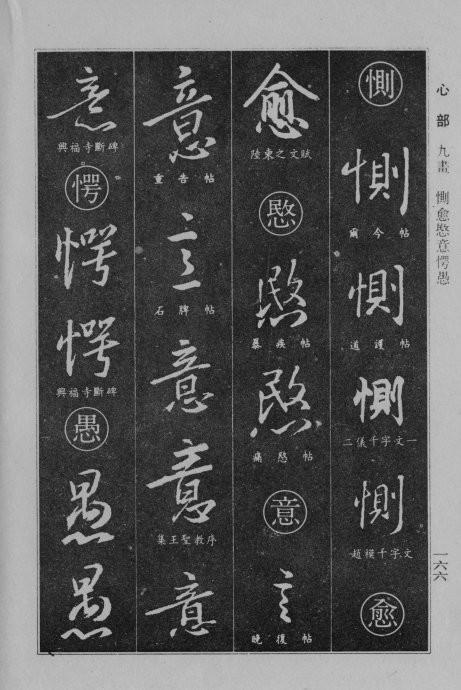 心部 九畫 惻愈愍意愕愚
一六六
惻
惻
爾今帖
惻
道護帖
惻
二儀千字文一
惻
趙模千字文
愈
愈
陸東之文賦
愍
愍
暴疾帖
愍
痛愍帖
意
意
晚復帖
意
重告帖
意
石脾帖
意
意
集王聖教序
意
意
興福寺斷碑
愕
愕
愕
興福寺斷碑
愚
愚
愚